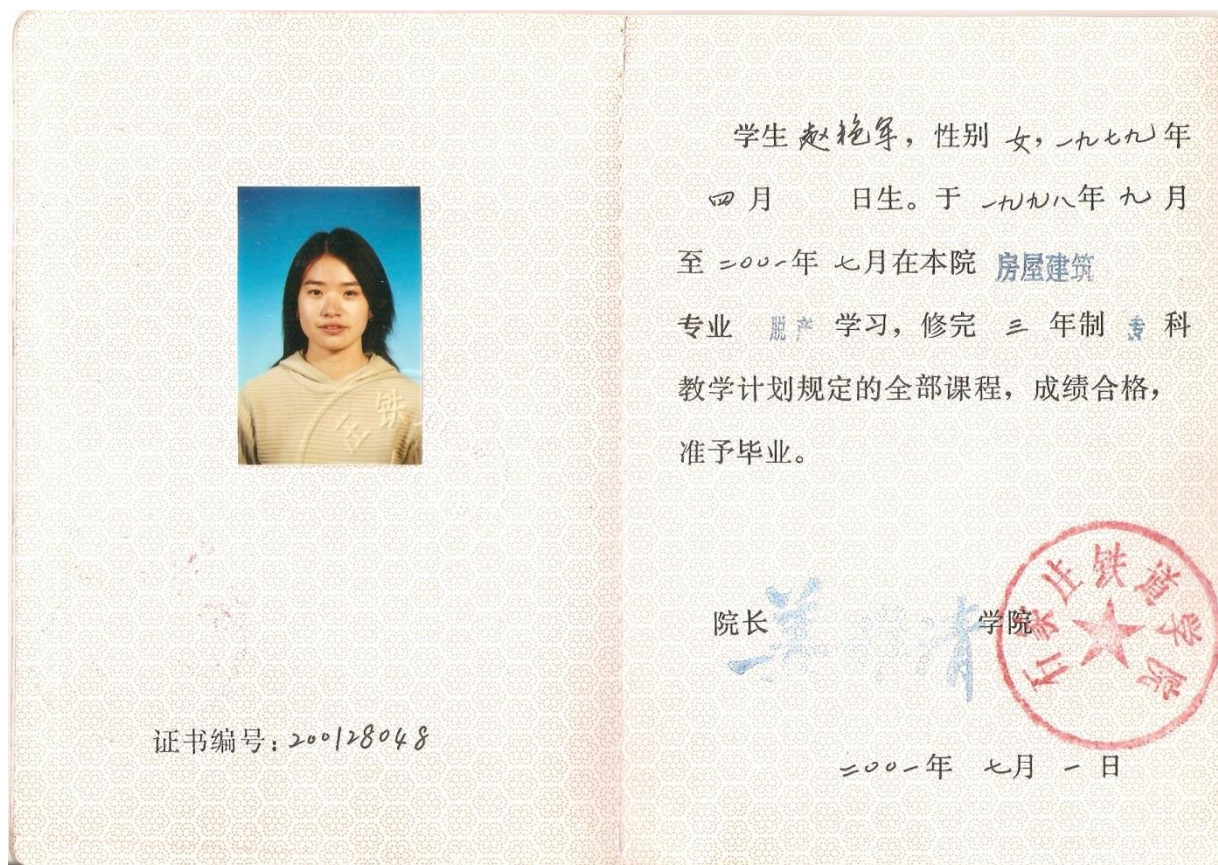 证书编号：200128048
学生 赵艳军，性别 女，一九七九年
四月 日生。于 一九九八年 九 月
至 二〇〇一年 七月在本院 房屋建筑
专业 脱产 学习，修完 三 年制 专 科
教学计划规定的全部课程，成绩合格，
准予毕业。
院长 学院
石家庄铁道学院
二〇〇一年 七月 一 日